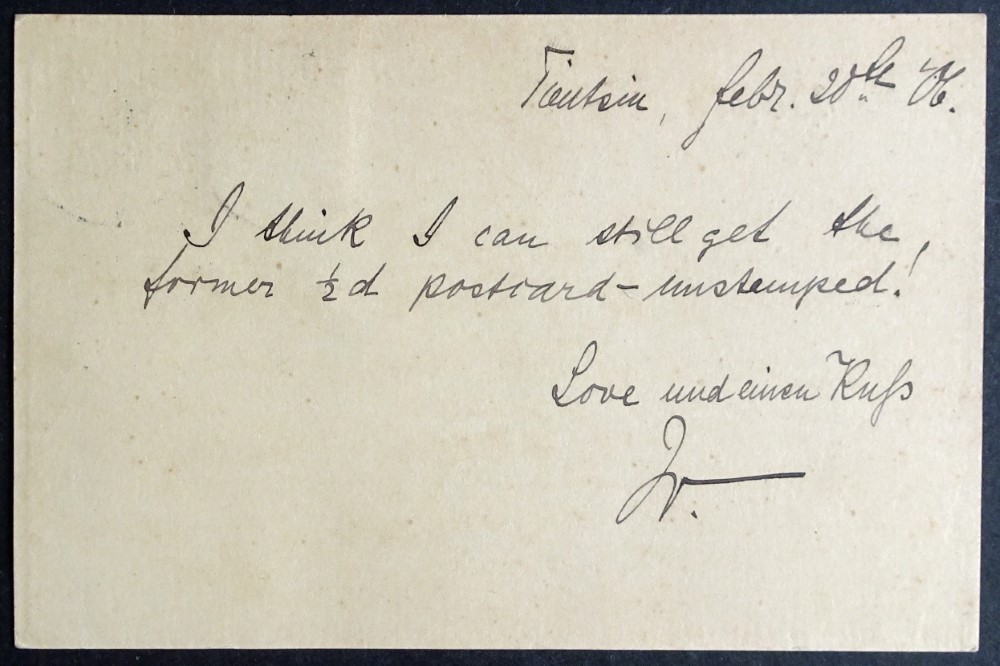 Tientsin, febr. 20th '06.
I think I can still get the,
former ½d postcard - unstamped!
Love und einen Kuſs
W.